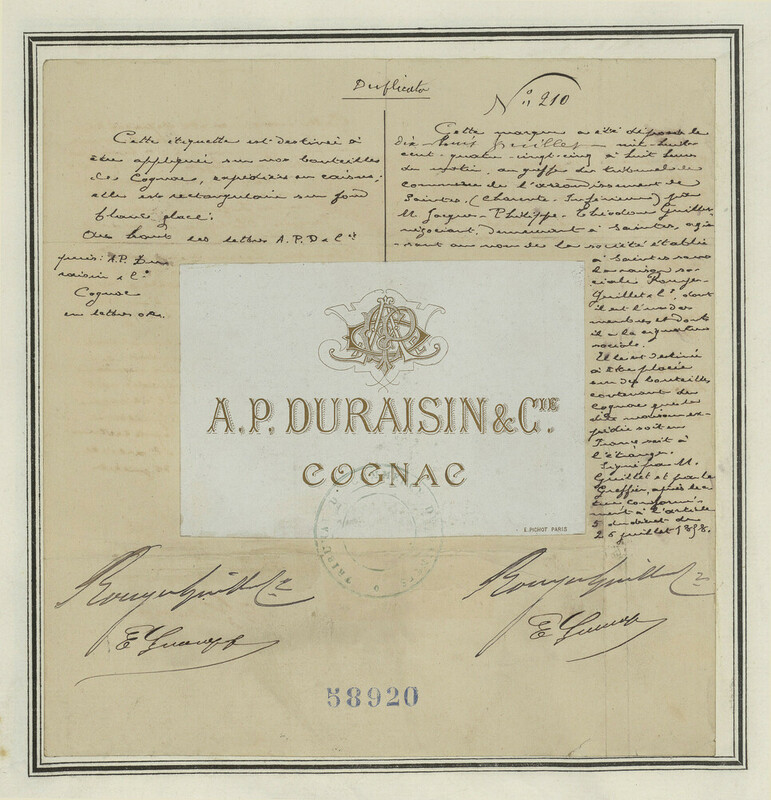 Duplicata
N° 210
Cette étiquette est destinée à
être appliquée sur nos bouteilles
de Cognac, expédiées en caisses;
elle est rectangulaire sur fond
blanc glacé.
En haut les lettres A. P. D & Cie
puis: A.P. Du
raisin & Cie
Cognac
en lettres or.
Cette marque a été déposée le
dix huit juillet mil-huit
cent-quatre-vingt-cinq à huit heures
du matin, au greffe du tribunal de
commerce de l'arrondissement de
Saintes. (Charente Inférieure) par
M. Jacques-Philippe-Théodore Guillet
négociant, demeurant à Saintes, agis
sant au nom de la société établie
à Saintes sous
la raison so
ciale Rouyer-
Guillet & Cie, dont
il est l'un des
membres et dont
il a la signature
sociale.
Elle est destinée
à être placée
sur des bouteilles
contenant du
Cognac que la
dite maison ex-
pédie soit en
France soit à
l'étranger.
Signé par M.
Guillet et par le
Greffier, après lec
ture conformé
ment à l'article
5 du décret du
26 juillet 1858.
A.P. DURAISIN & CIE.
COGNAC
E. PICHOT PARIS
Rouyer Guillet Cie
Rouyer Guillet Cie
58920